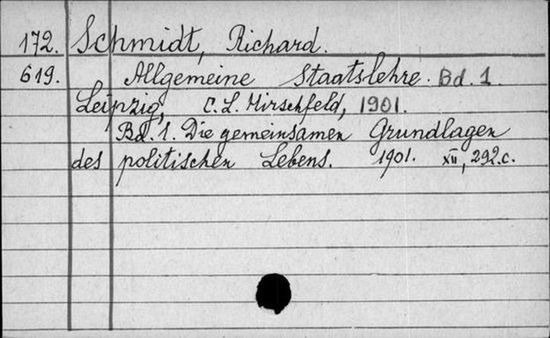 172. Schmidt, Richard.
619. Allgemeine Staatslehre. Bd. 1.
Leipzig, C. L. Hirschfeld, 1901.
Bd. 1. Die gemeinsamen Grundlagen
des politischen Lebens. 1901. XII, 292 c.